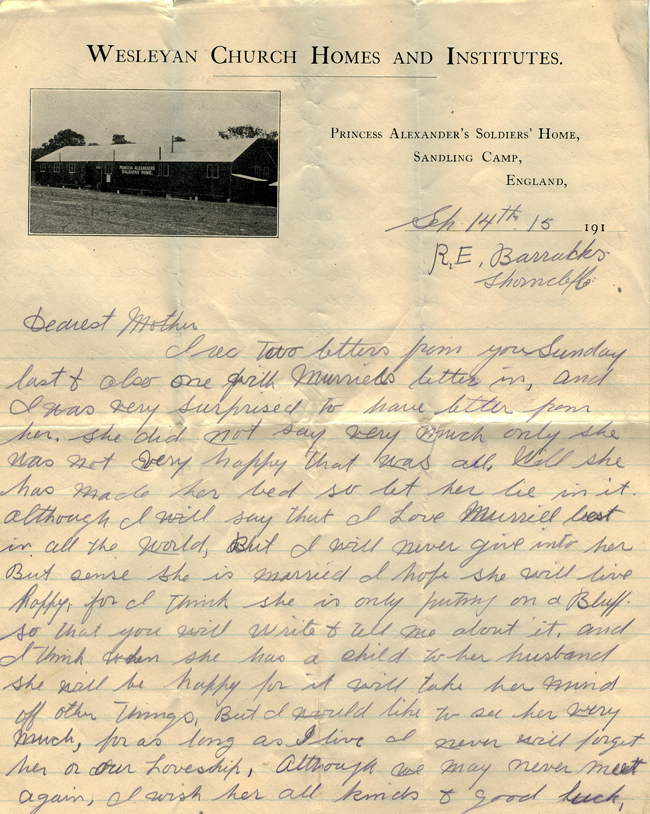 WESLEYAN CHURCH HOMES AND INSTITUTES.
PRINCESS ALEXANDERS
SOLDIERS HOME.
PRINCESS ALEXANDER'S SOLDIERS' HOME,
SANDLING CAMP,
ENGLAND,
Sep. 14th. 15 191
R,E, Barracks
Shorncliffe
Dearest Mother
I rec two letters from you Sunday
last & also one with Murriels letter in, and
I was very surprised to have letter from
her. she did not say very much only she
was not very happy that was all. Well she
has made her bed so let her lie in it.
although I will say that I Love Murriel best
in all the world, But I will never give into her
But sense she is married I hope she will live
happy, for I think she is only puting on a Bluff.
so that you will write & tell me about it, and
I think when she has a child to her husband
she will be happy for it will take her mind
off other things, But I would like to see her very
much, for as long as I live I never will forget
her or our Loveship, Although we may never meet
again, I wish her all kinds & good luck,